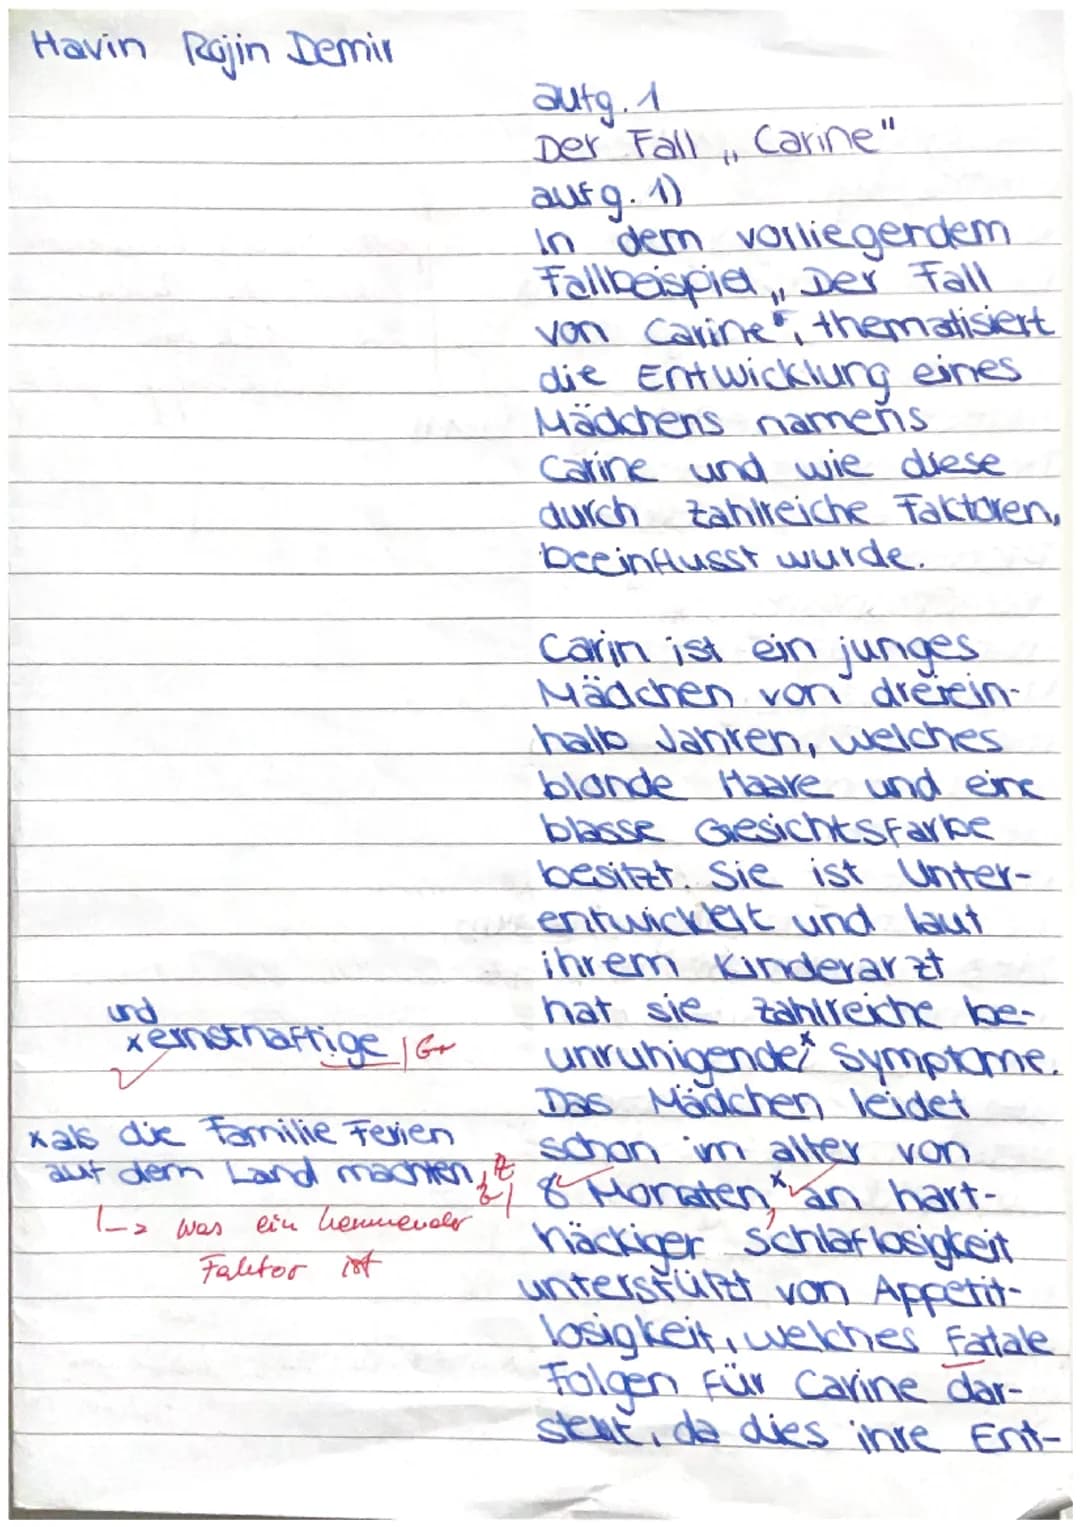 Havin Rojin Demir
aufg. 1
Der Fall „Carine"
aufg. 1)
In dem vorliegendem
Fallbeispiel „Der Fall
von Carine", thematisiert
die Entwicklung eines
Mädchens namens
Carine und wie diese
durch zahlreiche Faktoren,
beeinflusst wurde.
Carin ist ein junges
Mädchen von dreiein-
halb Jahren, welches
blonde Haare und eine
blasse Gesichtsfarbe
besitzt. Sie ist Unter-
entwickelt und laut
ihrem Kinderarzt
hat sie zahlreiche be-
und
x ernsthaftige | Gr
unruhigende x Symptome.
Das Mädchen leidet
x als die Familie Ferien
schon im alter von
auf dem Land machten, Z
8 Monaten, x an hart-
↳ was ein hemmender
Faktor ist
näckiger Schlaflosigkeit
unterstützt von Appetit-
losigkeit, welches Fatale
Folgen für Carine dar-
stellt, da dies ihre Ent-